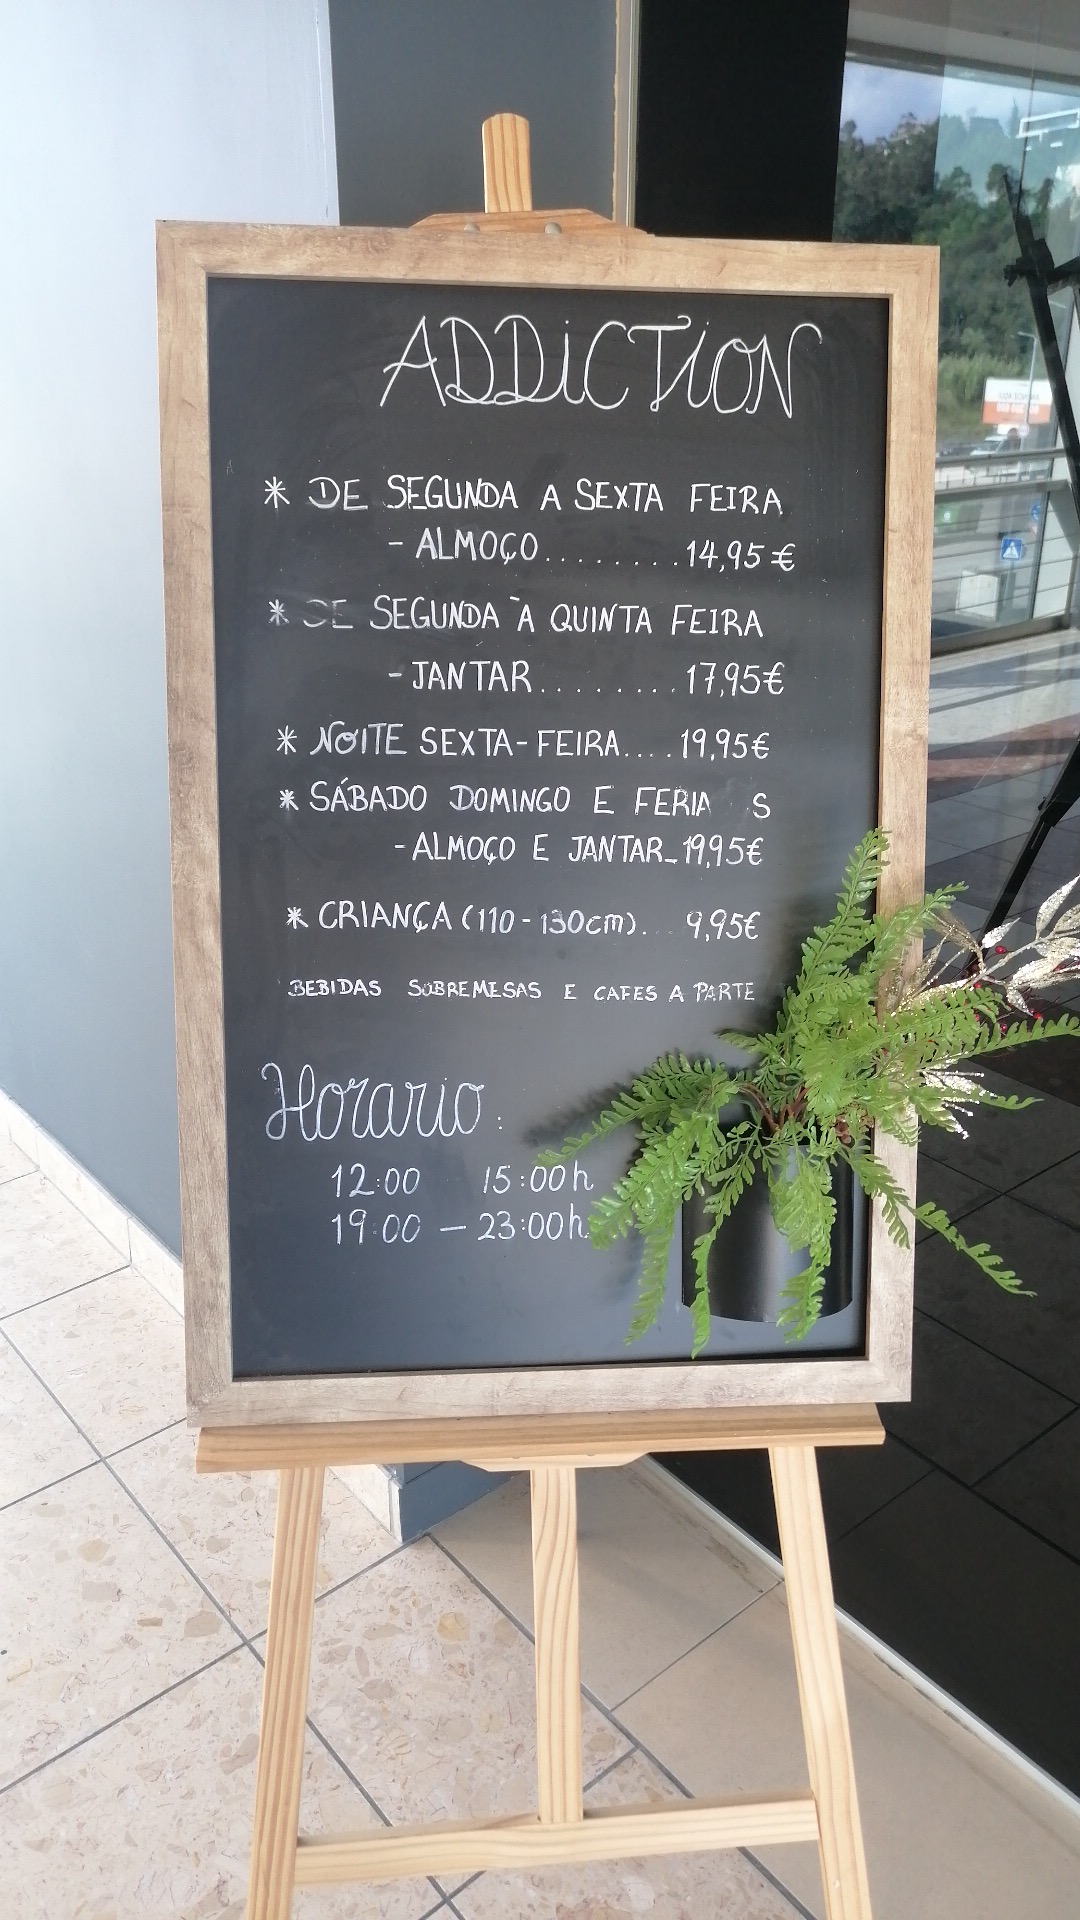 ADDiCTiON
* DE SEGUNDA A SEXTA FEIRA
- ALMOÇO........14,95 €
* DE SEGUNDA À QUINTA FEIRA
- JANTAR........17,95€
* NOITE SEXTA-FEIRA....19,95€
* SÁBADO DOMINGO E FERIA S
- ALMOÇO E JANTAR_19,95€
* CRIANÇA (110-130cm)... 9,95€
BEBIDAS SOBREMESAS E CAFES A PARTE
Horario:
12:00 15:00h
19:00 — 23:00h